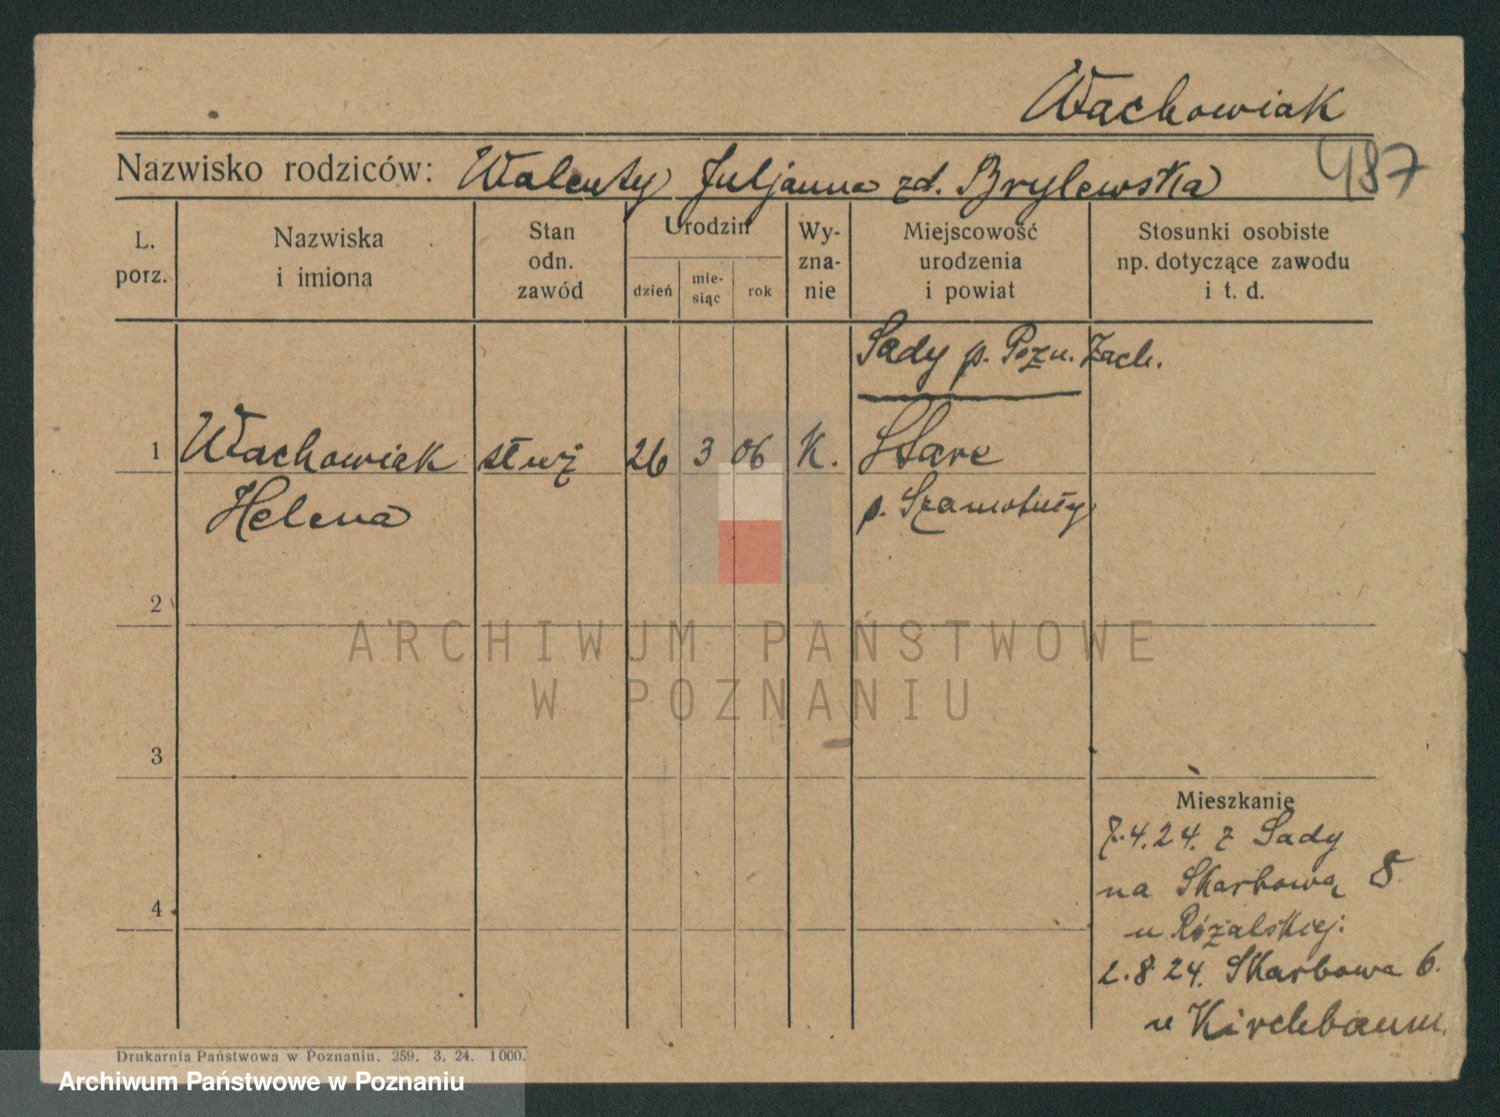 Wachowiak
Nazwisko rodziców: Walenty Juljanna zd. Brylewska
487
L. porz.
Nazwiska i imiona
Stan odn. zawód
Urodzin
dzień
mie-
siąc
rok
Wy-
zna-
nie
Miejscowość urodzenia i powiat
Stosunki osobiste np. dotyczące zawodu i t. d.
Sady p. Pozn. Zach.
1 Wachowiak służ 26 3 06 K. Stare
Helena p. Szamotuły
2
ARCHIWUM PAŃSTWOWE
W POZNANIU
3
Mieszkanie
7.4.24. z Sady
na Skarbową 8
4
u Różalskiej.
2.8.24. Skarbowa 6.
u Kirchbaum.
Drukarnia Państwowa w Poznaniu. 259. 3. 24. 1000.
Archiwum Państwowe w Poznaniu